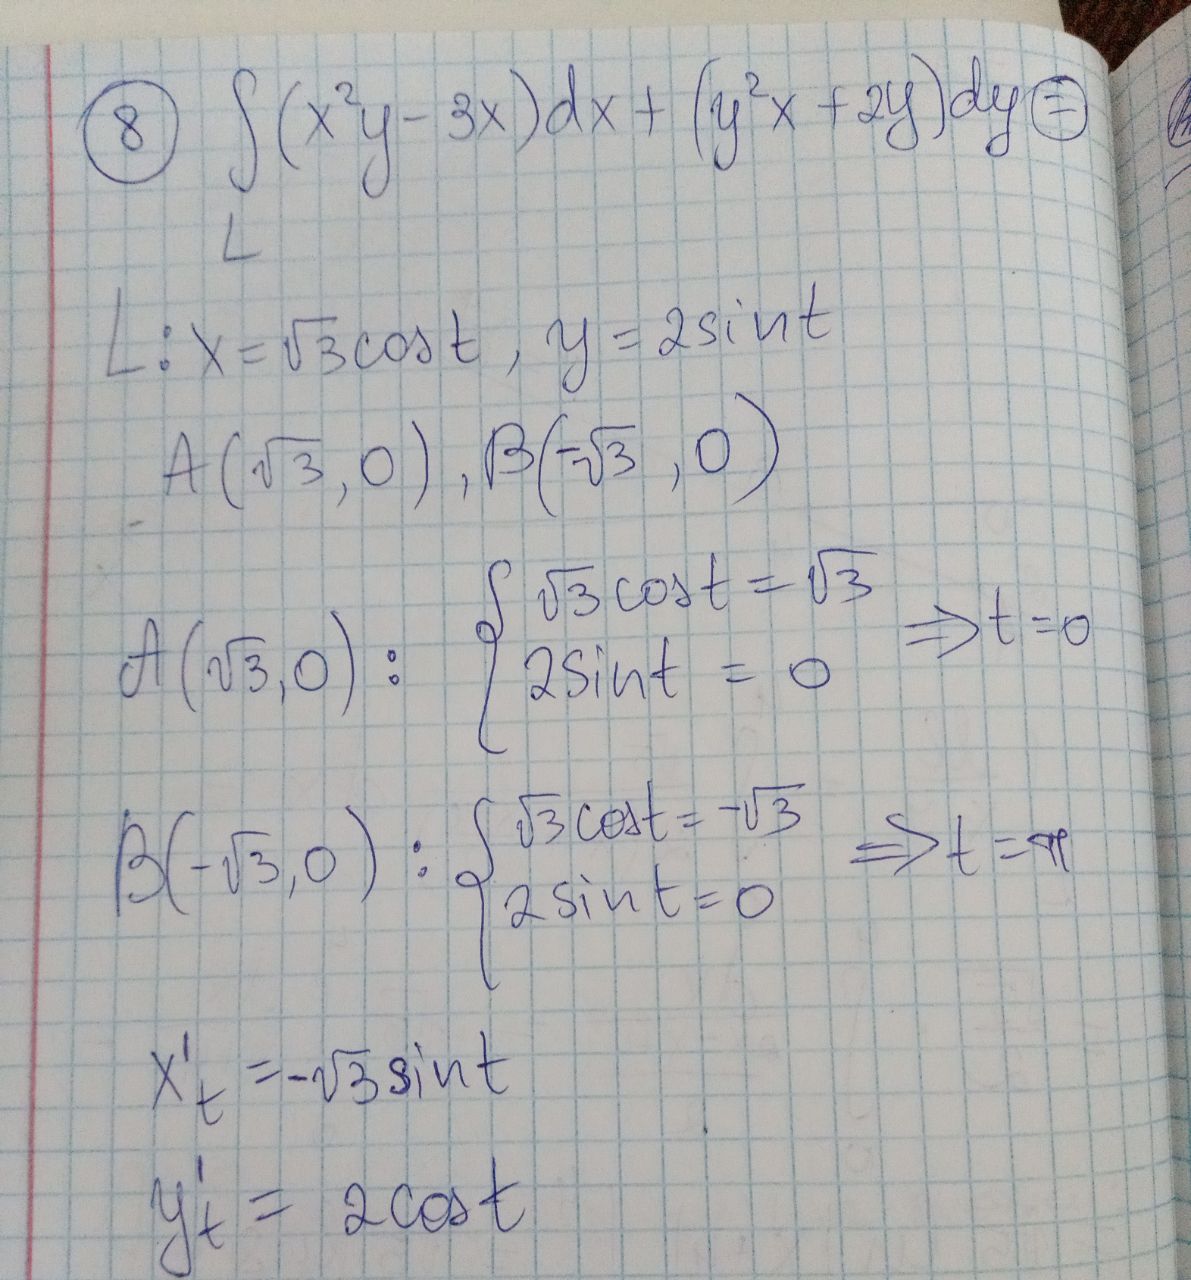 ⑧ ∫(x²y - 3x)dx + (y²x + 2y)dy ⊜
L
L: x = √3 cos t, y = 2 sin t
A(√3, 0), B(-√3, 0)
A(√3, 0): { √3 cos t = √3
2 sin t = 0 ⇒ t = 0
B(-√3, 0): { √3 cos t = -√3
2 sin t = 0 ⇒ t = π
x't = -√3 sin t
y't = 2 cos t